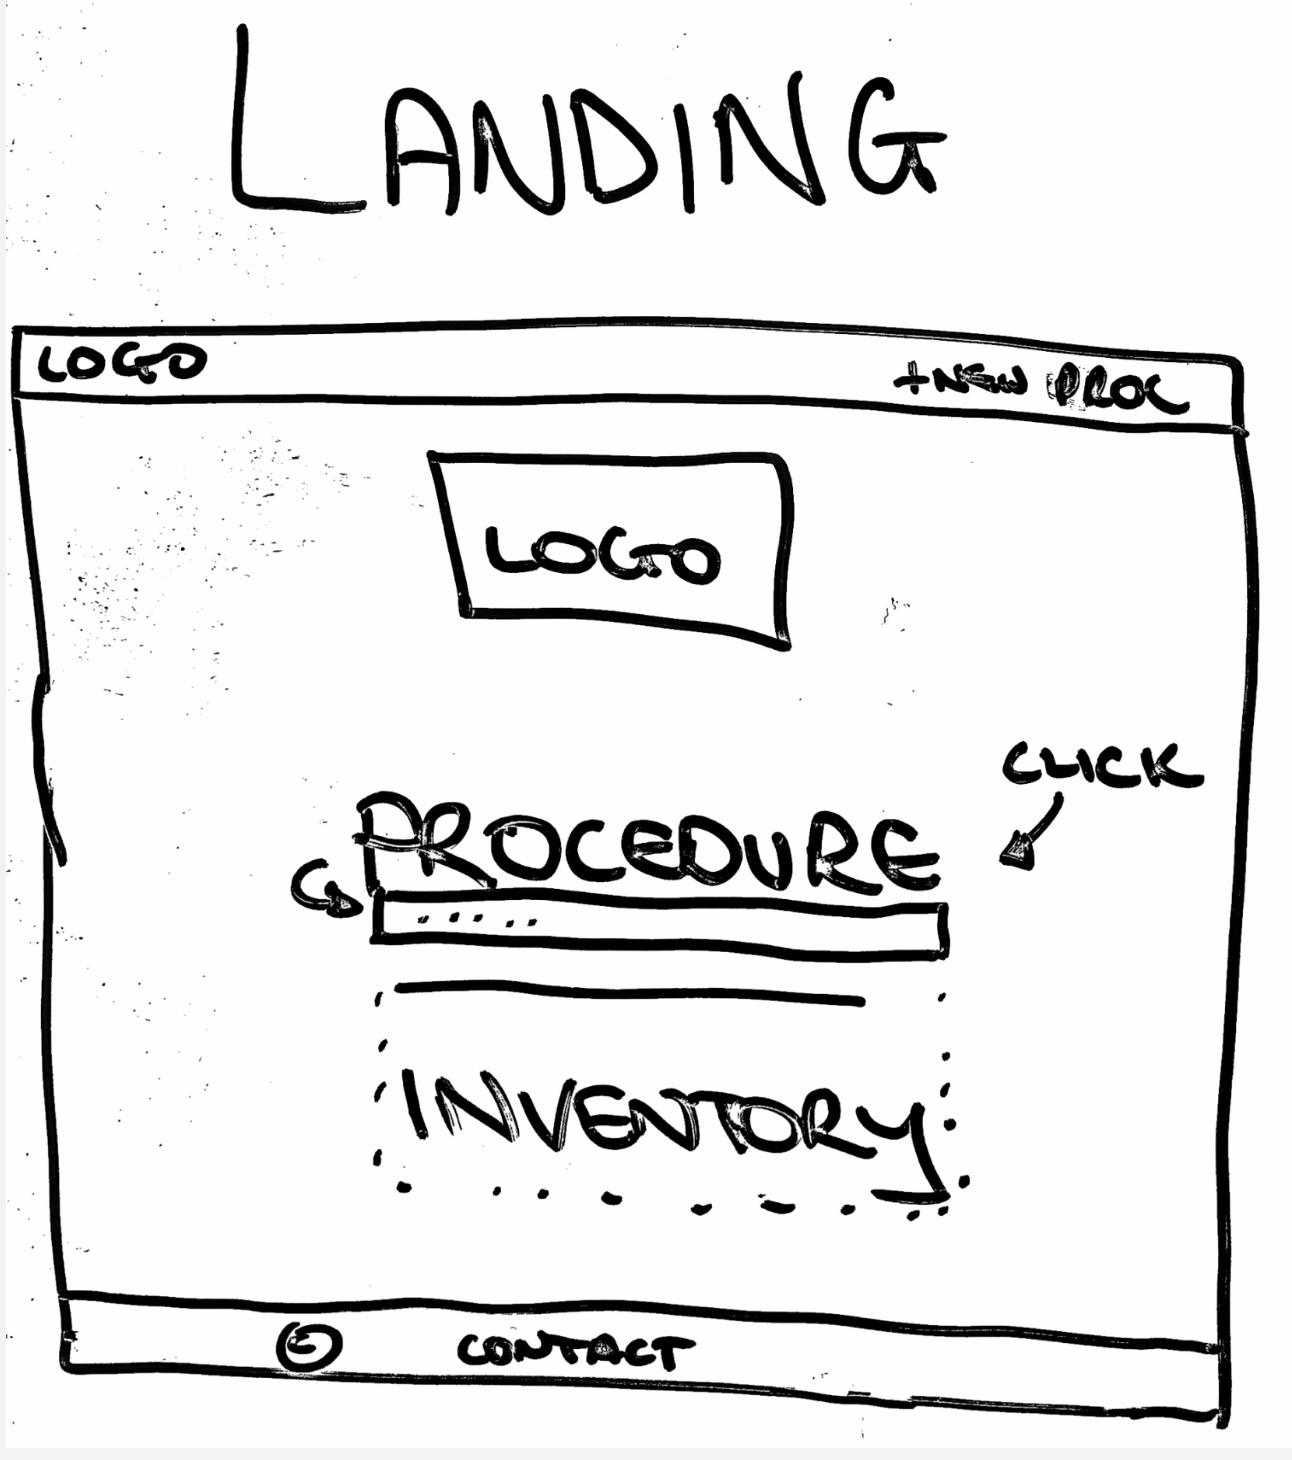 LANDING
LOGO +NEW PROC
LOGO
CLICK
PROCEDURE
INVENTORY
© CONTACT